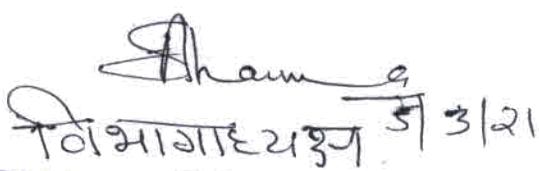 Sharma
विभागाध्यक्ष 5/3/21